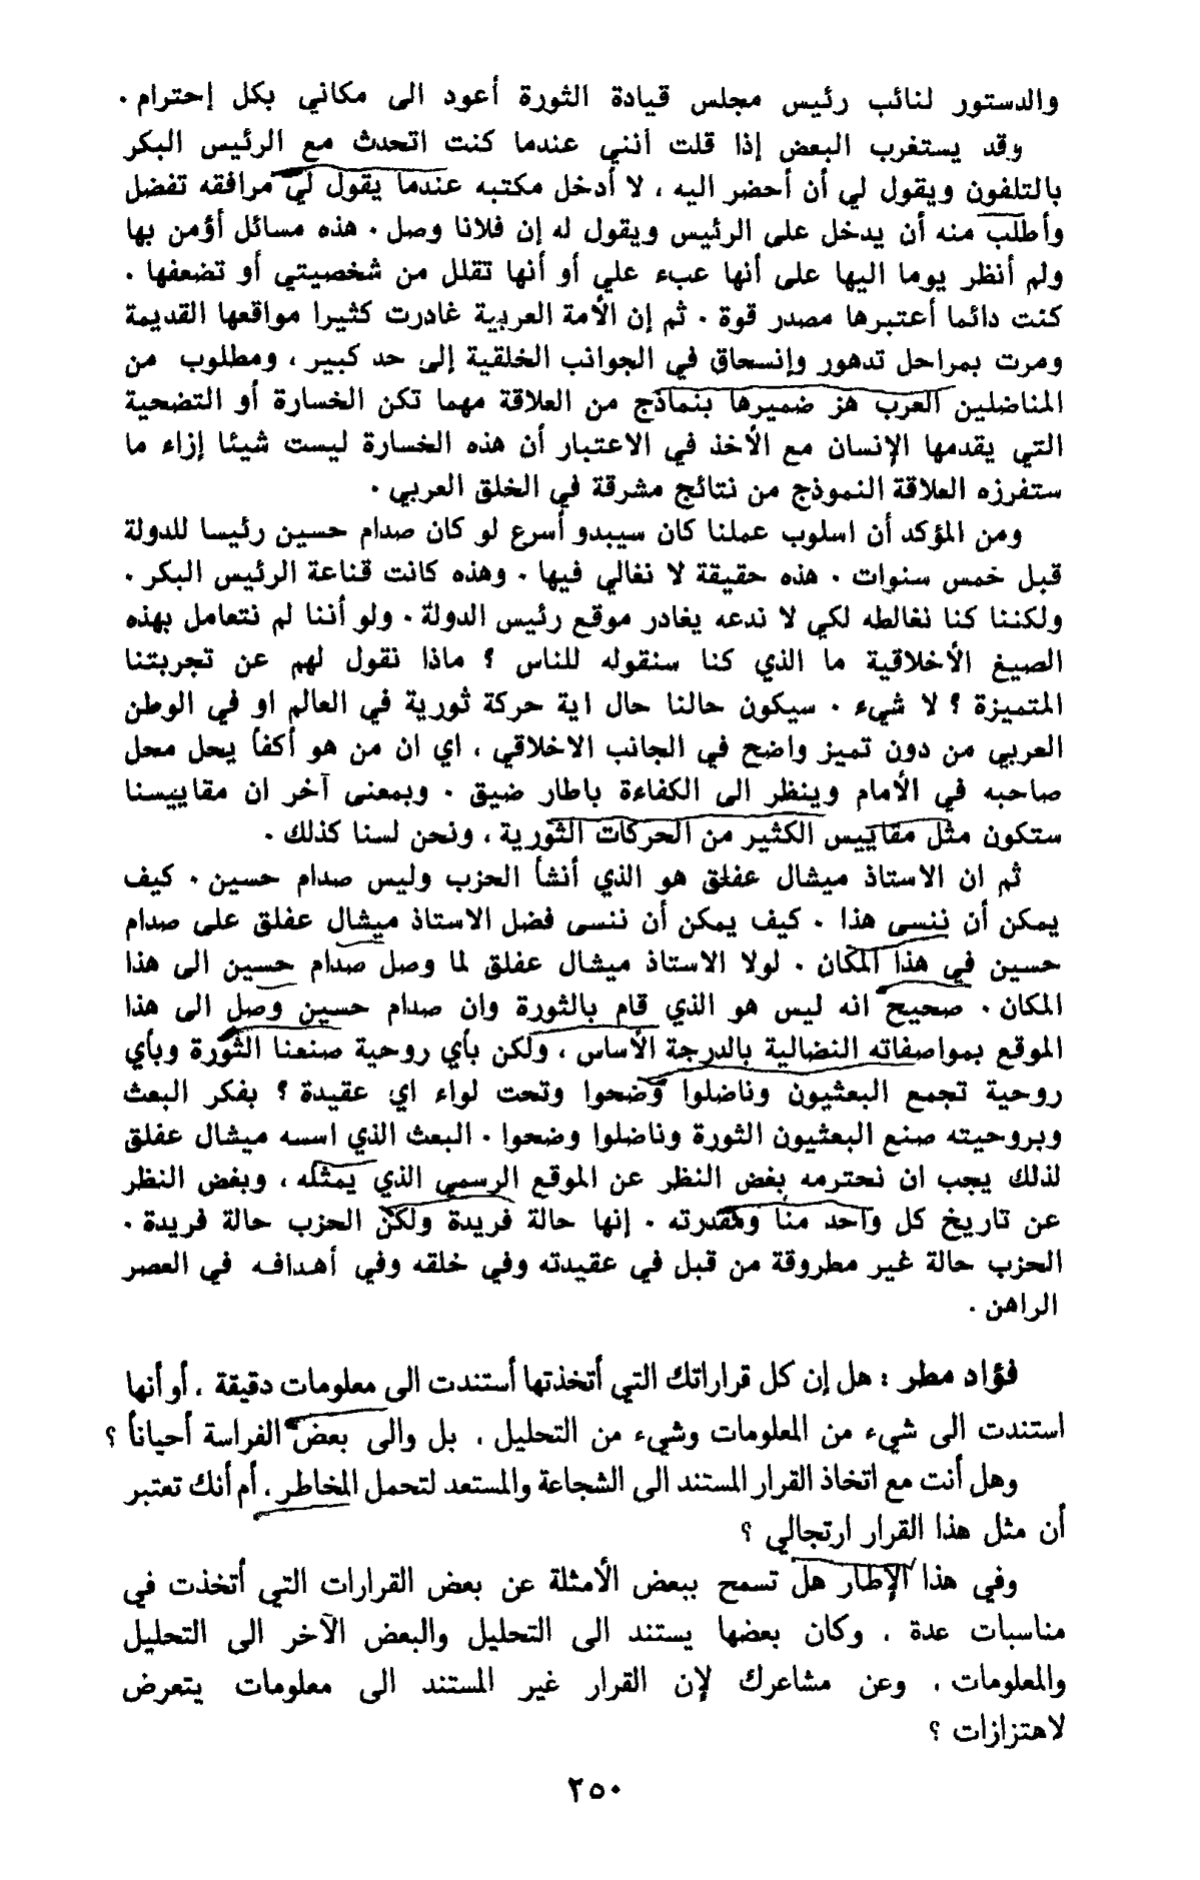 والدستور لنائب رئيس مجلس قيادة الثورة أعود الى مكاني بكل إحترام .
وقد يستغرب البعض إذا قلت أنني عندما كنت اتحدث مع الرئيس البكر
بالتلفون ويقول لي أن أحضر اليه ، لا أدخل مكتبه عندما يقول لي مرافقه تفضل
وأطلب منه أن يدخل على الرئيس ويقول له إن فلانا وصل . هذه مسائل أؤمن بها
ولم أنظر يوما اليها على أنها عبء علي أو أنها تقلل من شخصيتي أو تضعفها .
كنت دائما أعتبرها مصدر قوة . ثم إن الأمة العربية غادرت كثيرا مواقعها القديمة
ومرت بمراحل تدهور وإنسحاق في الجوانب الخلقية إلى حد كبير ، ومطلوب من
المناضلين العرب هز ضميرها بنماذج من العلاقة مهما تكن الخسارة أو التضحية
التي يقدمها الإنسان مع الأخذ في الاعتبار أن هذه الخسارة ليست شيئا إزاء ما
ستفرزه العلاقة النموذج من نتائج مشرقة في الخلق العربي .
ومن المؤكد أن اسلوب عملنا كان سيبدو أسرع لو كان صدام حسين رئيسا للدولة
قبل خمس سنوات . هذه حقيقة لا نغالي فيها . وهذه كانت قناعة الرئيس البكر .
ولكننا كنا نغالطه لكي لا ندعه يغادر موقع رئيس الدولة . ولو أننا لم نتعامل بهذه
الصيغ الأخلاقية ما الذي كنا سنقوله للناس ؟ ماذا نقول لهم عن تجربتنا
المتميزة ؟ لا شيء . سيكون حالنا حال اية حركة ثورية في العالم او في الوطن
العربي من دون تميز واضح في الجانب الاخلاقي ، اي ان من هو أكفأ يحل محل
صاحبه في الأمام وينظر الى الكفاءة باطار ضيق . وبمعنى آخر ان مقاييسنا
ستكون مثل مقاييس الكثير من الحركات الثورية ، ونحن لسنا كذلك .
ثم ان الاستاذ ميشال عفلق هو الذي أنشأ الحزب وليس صدام حسين . كيف
يمكن أن ننسى هذا . كيف يمكن أن ننسى فضل الاستاذ ميشال عفلق على صدام
حسين في هذا المكان . لولا الاستاذ ميشال عفلق لما وصل صدام حسين الى هذا
المكان . صحيح انه ليس هو الذي قام بالثورة وان صدام حسين وصل الى هذا
الموقع بمواصفاته النضالية بالدرجة الأساس ، ولكن بأي روحية صنعنا الثورة وبأي
روحية تجمع البعثيون وناضلوا وضحوا وتحت لواء اي عقيدة ؟ بفكر البعث
وبروحيته صنع البعثيون الثورة وناضلوا وضحوا . البعث الذي اسسه ميشال عفلق
لذلك يجب ان نحترمه بغض النظر عن الموقع الرسمي الذي يمثله ، وبغض النظر
عن تاريخ كل واحد منا ومقدرته . إنها حالة فريدة ولكن الحزب حالة فريدة .
الحزب حالة غير مطروقة من قبل في عقيدته وفي خلقه وفي أهدافه في العصر
الراهن .
فؤاد مطر : هل إن كل قراراتك التي أتخذتها أستندت الى معلومات دقيقة ، أو أنها
استندت الى شيء من المعلومات وشيء من التحليل ، بل والى بعض الفراسة أحياناً ؟
وهل أنت مع اتخاذ القرار المستند الى الشجاعة والمستعد لتحمل المخاطر ، أم أنك تعتبر
أن مثل هذا القرار ارتجالي ؟
وفي هذا الإطار هل تسمح ببعض الأمثلة عن بعض القرارات التي أتخذت في
مناسبات عدة ، وكان بعضها يستند الى التحليل والبعض الآخر الى التحليل
والمعلومات ، وعن مشاعرك لإن القرار غير المستند الى معلومات يتعرض
لاهتزازات ؟
٢٥٠